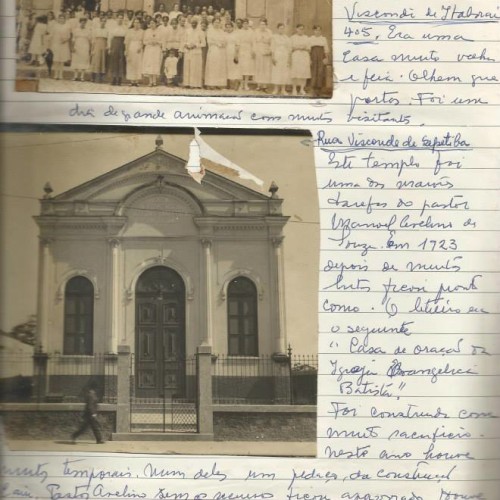 Visconde de Itaboraí
405. Era uma
casa muito velha
e feia. Olhem que
portas. Foi um
dia de grande animação com muitos visitantes.
Rua Visconde de Sepetiba
Este templo foi
uma das maiores
tarefas do pastor
Manoel Avelino de
Souza. Em 1923
depois de muita
luta ficou pronto
como. O letreiro era
o seguinte
"Casa de oração da
Igreja Evangelica
Batista".
Foi construido com
muito sacrifício.
neste ano houve
temporais. Num deles um pedreiro, da construção
caiu. Pastor Avelino